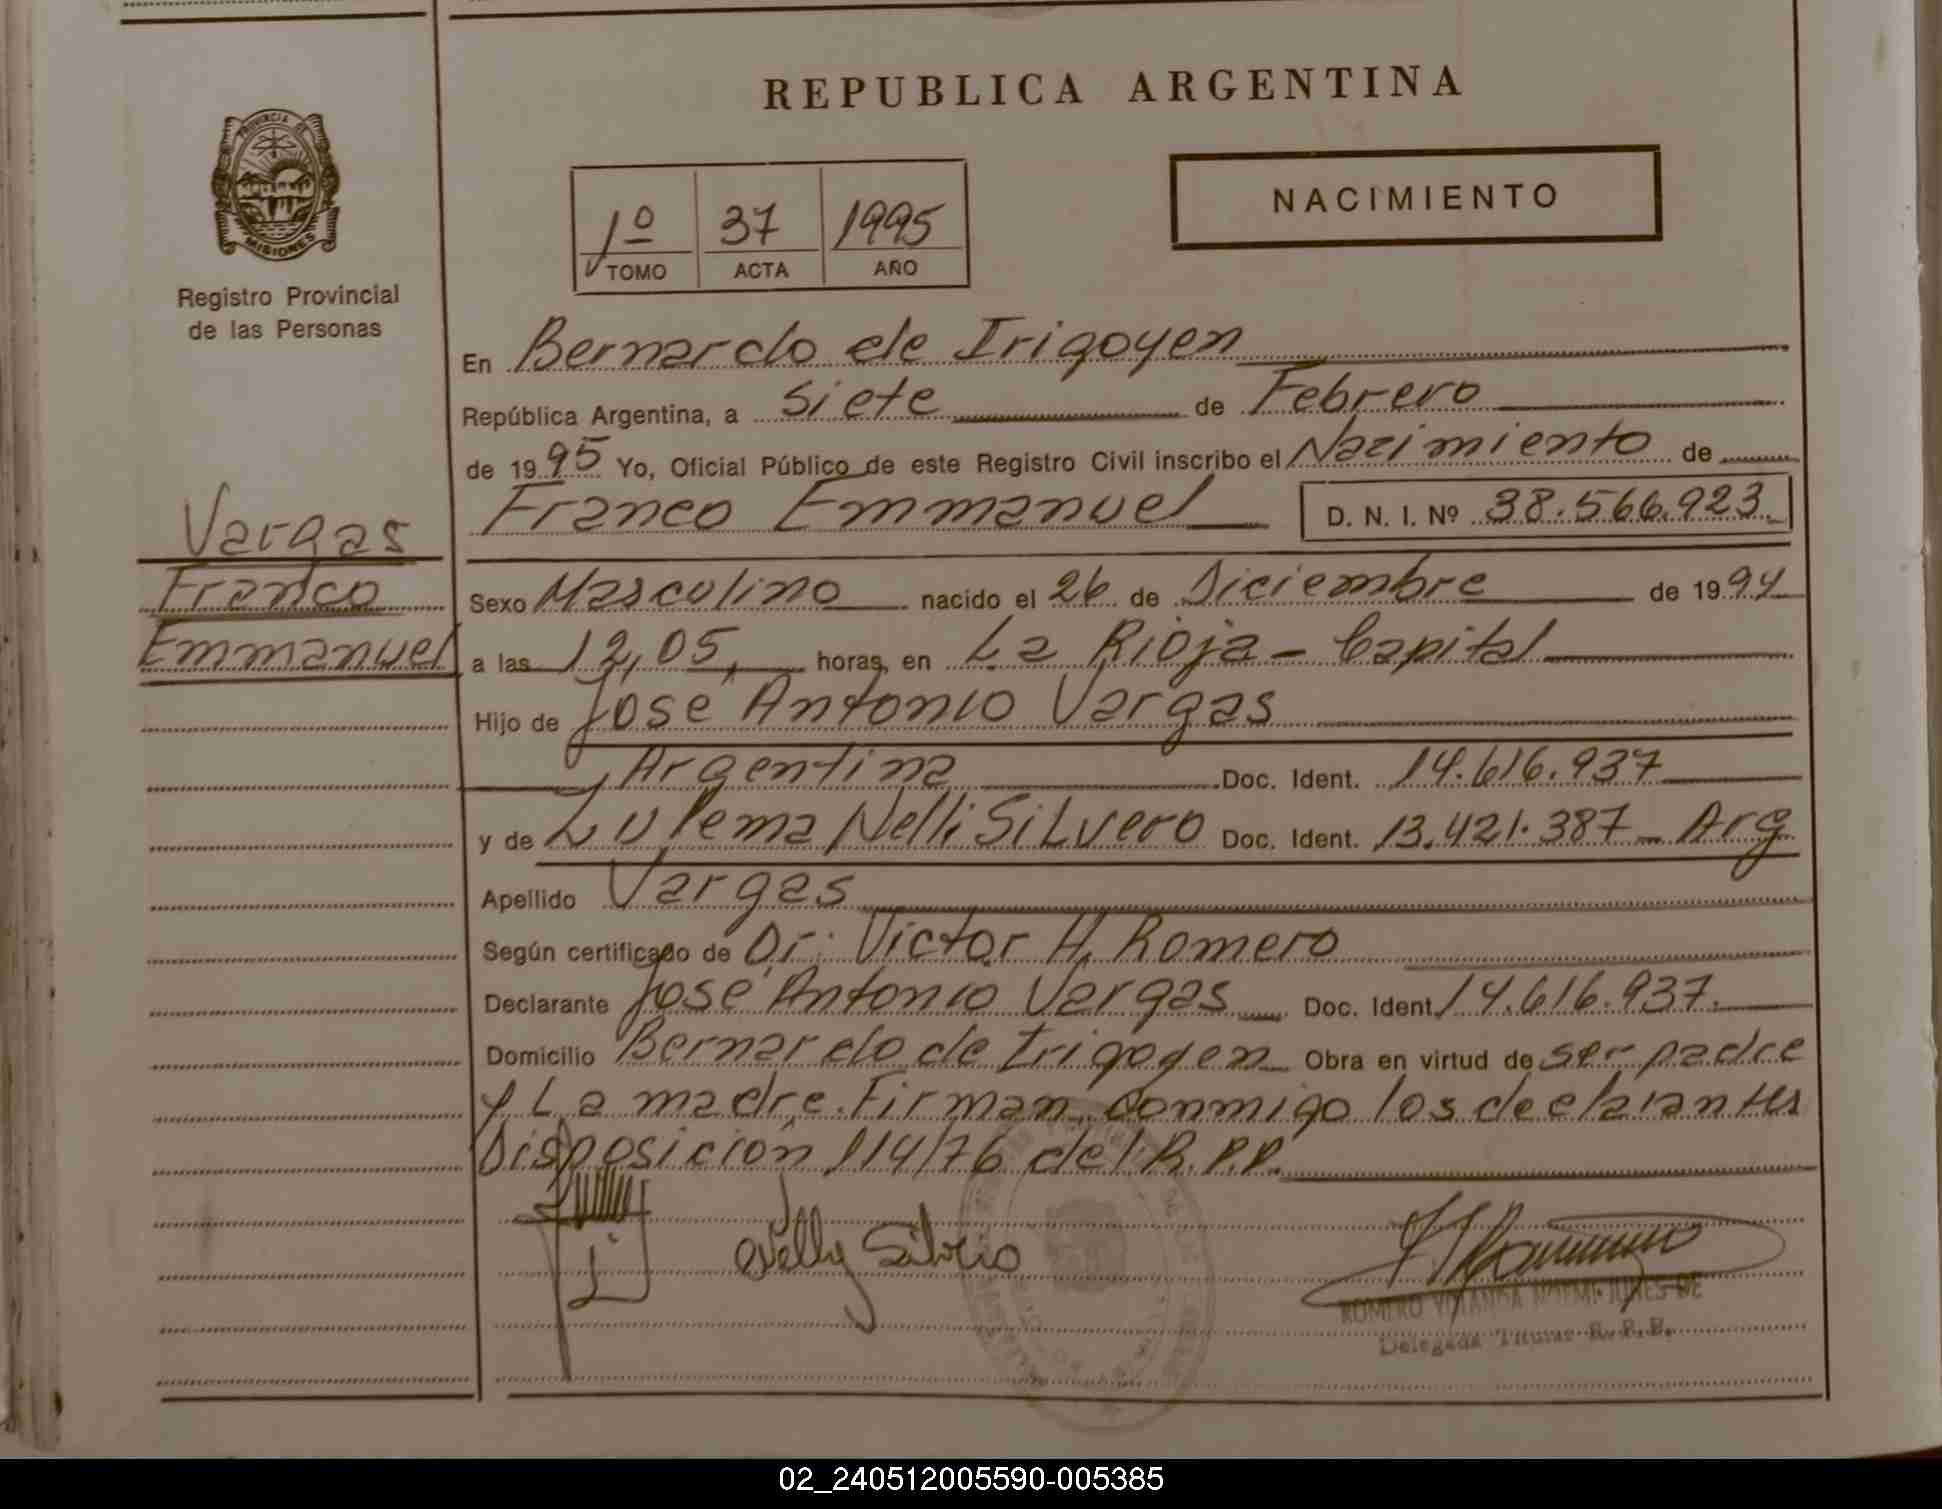 REPUBLICA ARGENTINA
PROVINCIA DE
MISIONES
Registro Provincial
de las Personas
NACIMIENTO
1º 37 1995
TOMO ACTA AÑO
En Bernardo de Irigoyen
República Argentina, a siete de Febrero
de 1995 Yo, Oficial Público de este Registro Civil inscribo el Nacimiento de
Franco Emmanuel D. N. I. Nº 38.566.923.
Vargas
Franco
Emmanuel
Sexo Masculino nacido el 26 de Diciembre de 1994
a las 12,05, horas, en La Rioja - Capital
Hijo de José Antonio Vargas
Argentina Doc. Ident. 14.616.937
y de Zulema Nelli SiLvero Doc. Ident. 13.421.387 - Arg
Apellido Vargas
Según certificado de Dr. Victor H. Romero
Declarante José Antonio Vargas Doc. Ident. 14.616.937.
Domicilio Bernardo de Irigoyen Obra en virtud de ser padre
y La madre. Firman conmigo los declarantes
Disposición 114/76 del R.P.P.
Nelly Silverio
ROMERO YOLANDA NOEMI JUNES DE
Delegada Titular R. P. P.
02_240512005590-005385